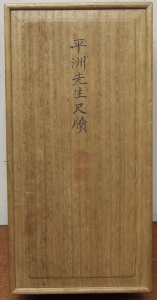 平洲先生尺牘